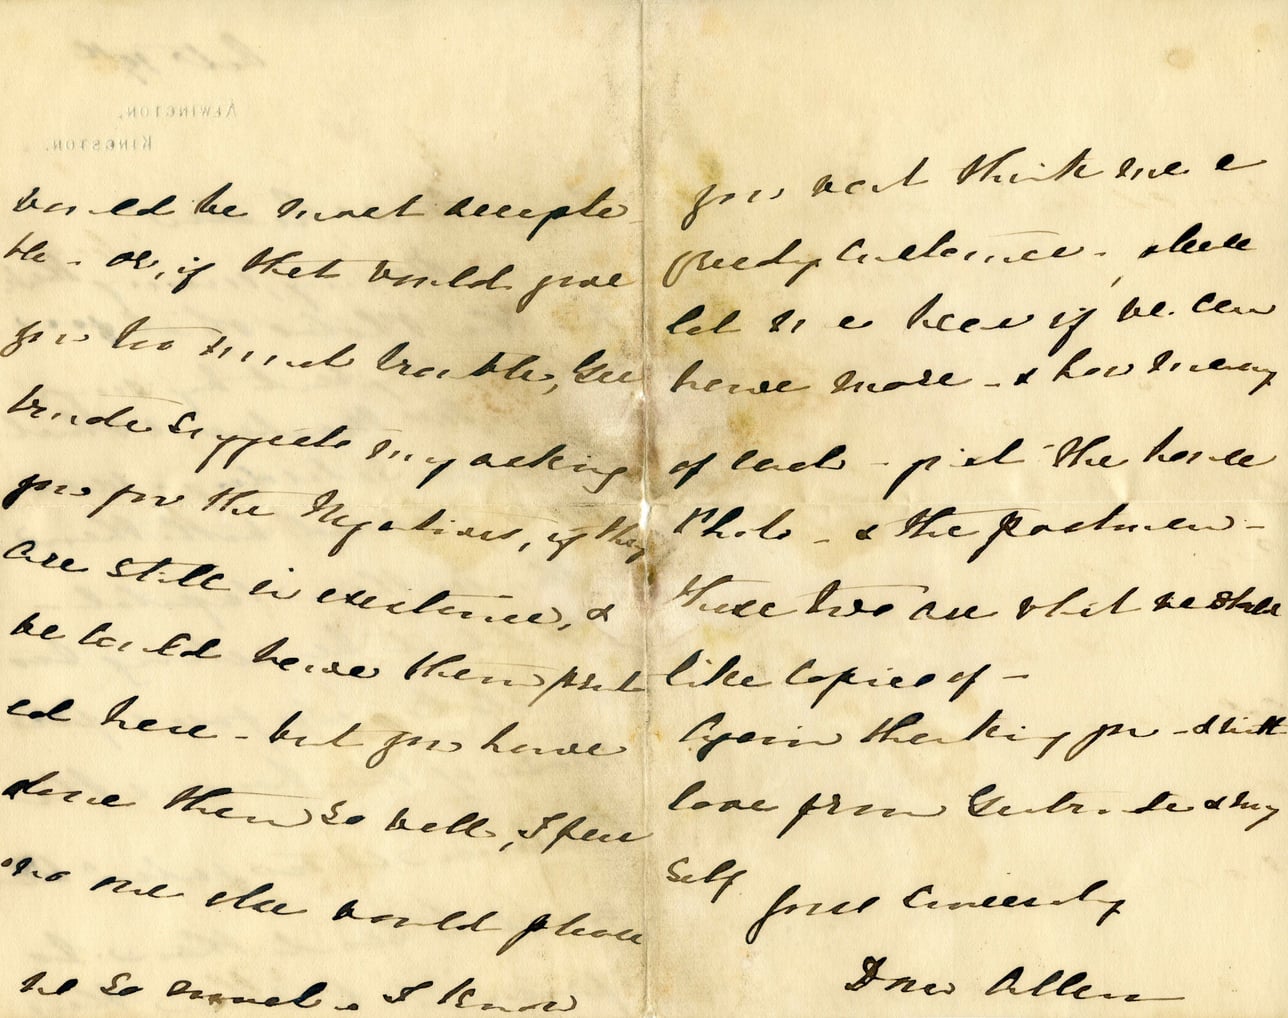 would be most accepta-
ble - or, if that would give
you too much trouble, Ger
trude suggests my asking
you for the Negatives, if they
are still in existence, &
we could have them print
ed here - but you have
done them so well, I fear
no one else would please
us so much. I know
you will think me a
greedy customer -, please
let me hear if we can
have more - & how many
of each - just the house
Photo - & the postman -
these two are what we shall
like copies of -
Again thanking you - & with
love from Gertrude & my
self
Yours sincerely
Allen
ALWINGTON,
KINGSTON.